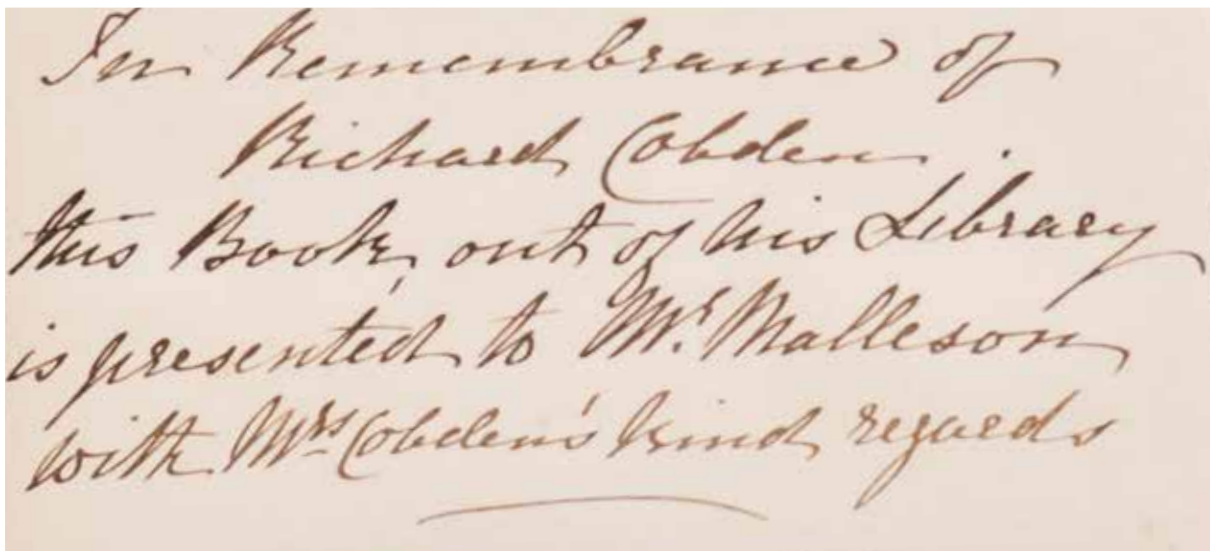 In Remembrance of
Richard Cobden.
this Book, out of his Library
is presented to Mr. Malleson
with Mrs Cobden's kind regards